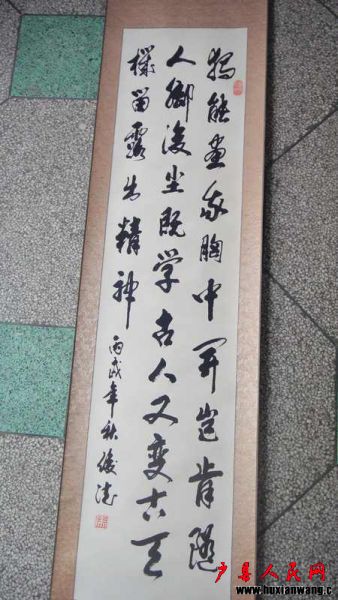 獨能画我胸中岂肯随
人脚後尘既学古人又变古天
機留露出精神
丙戌年秋俊
户县人民网
www.huxianwang.c